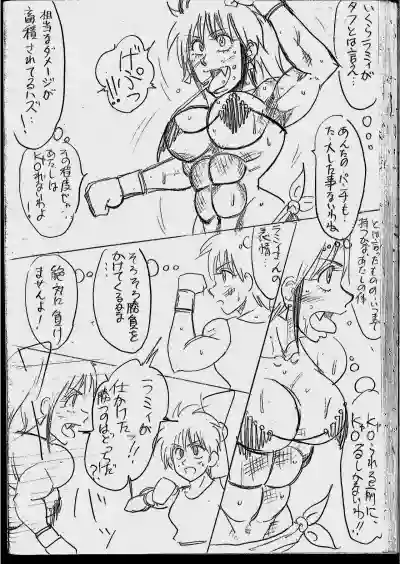 いくらラミィが
タフとは言え…
相当なダメージが
蓄積されてるハズ…!
げぷっ
あんたのパンチも
大した事ないわね
その程度や…
あたしは
KOれないわよ
とは言ったものの…いつまで
持つかなあたしの体
ラミィさんの
表情…
そろそろ勝負を
かけてくるかな
絶対に負け
ませんよ!
KOられる前に、
KOるしかないわ!!
ラミィが
仕かけたァ!!
勝つのはどっちだ
?!